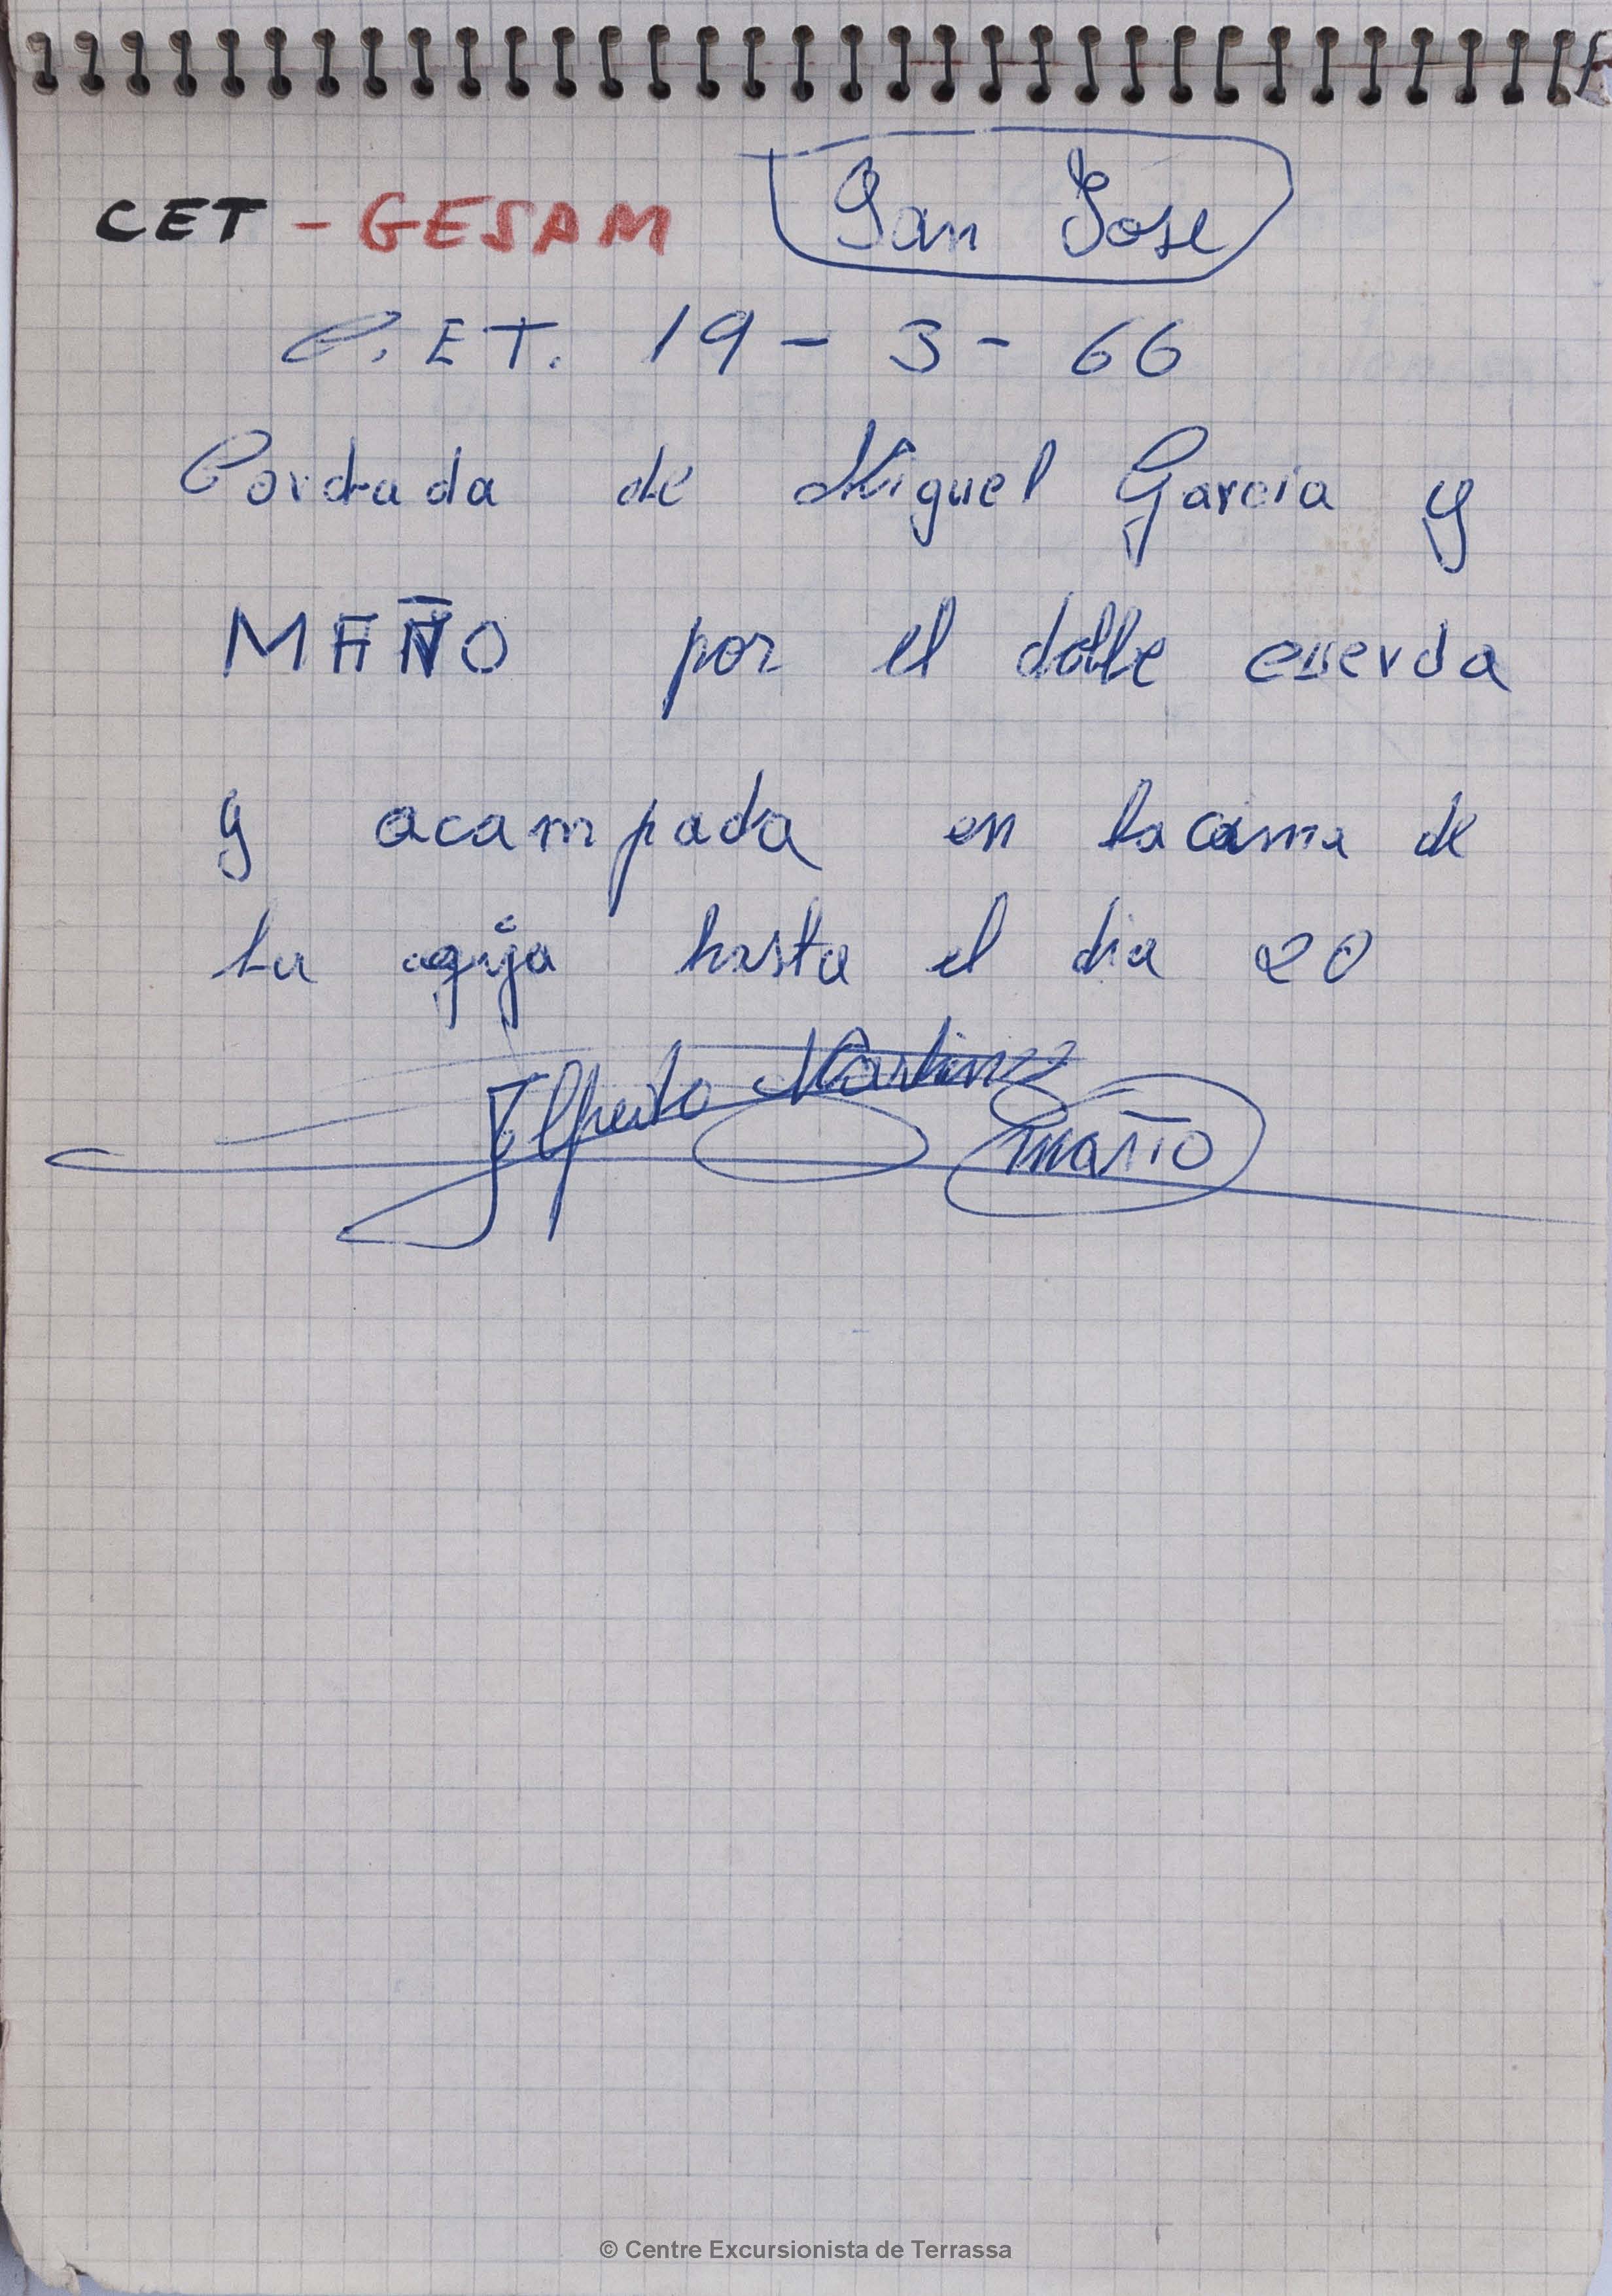 CET - GESAM San Jose
C. E T. 19 - 3 - 66
Cordada de Miguel Garcia y
MAÑO por el doble cuerda
y acampada en la cima de
la aguja hasta el dia 20
Alberto Martinez
maño
© Centre Excursionista de Terrassa